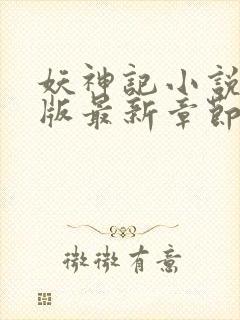 妖神記小説
版最新章節
微微有意